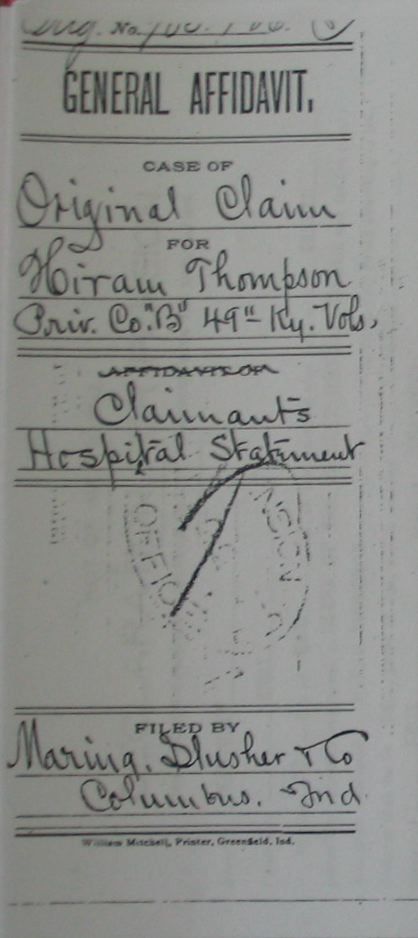 No.
GENERAL AFFIDAVIT.
CASE OF
Original Claim
FOR
Hiram Thompson
Priv. Co. "B" 49" Ky. Vols,
AFFIDAVIT OF
Claimants
Hospital Statement
OFFICE
FILED BY
Maring, Slusher & Co
Columbus, Ind.
William Mitchell, Printer, Greenfield, Ind.